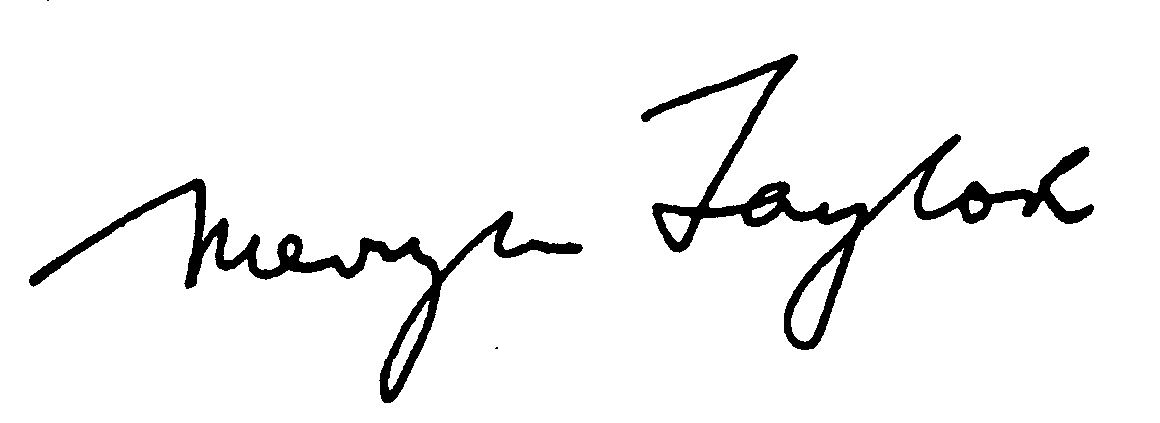 Mervyn Taylor